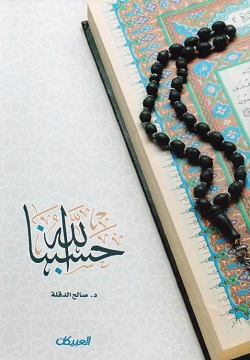 حسبنا الله
د. صالح الدقلة
العبيكان